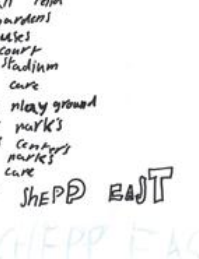 gardens
uses
court
stadium
care
play ground
parks
centers
parks
care
SHEPP EAST
SHEPP EAS